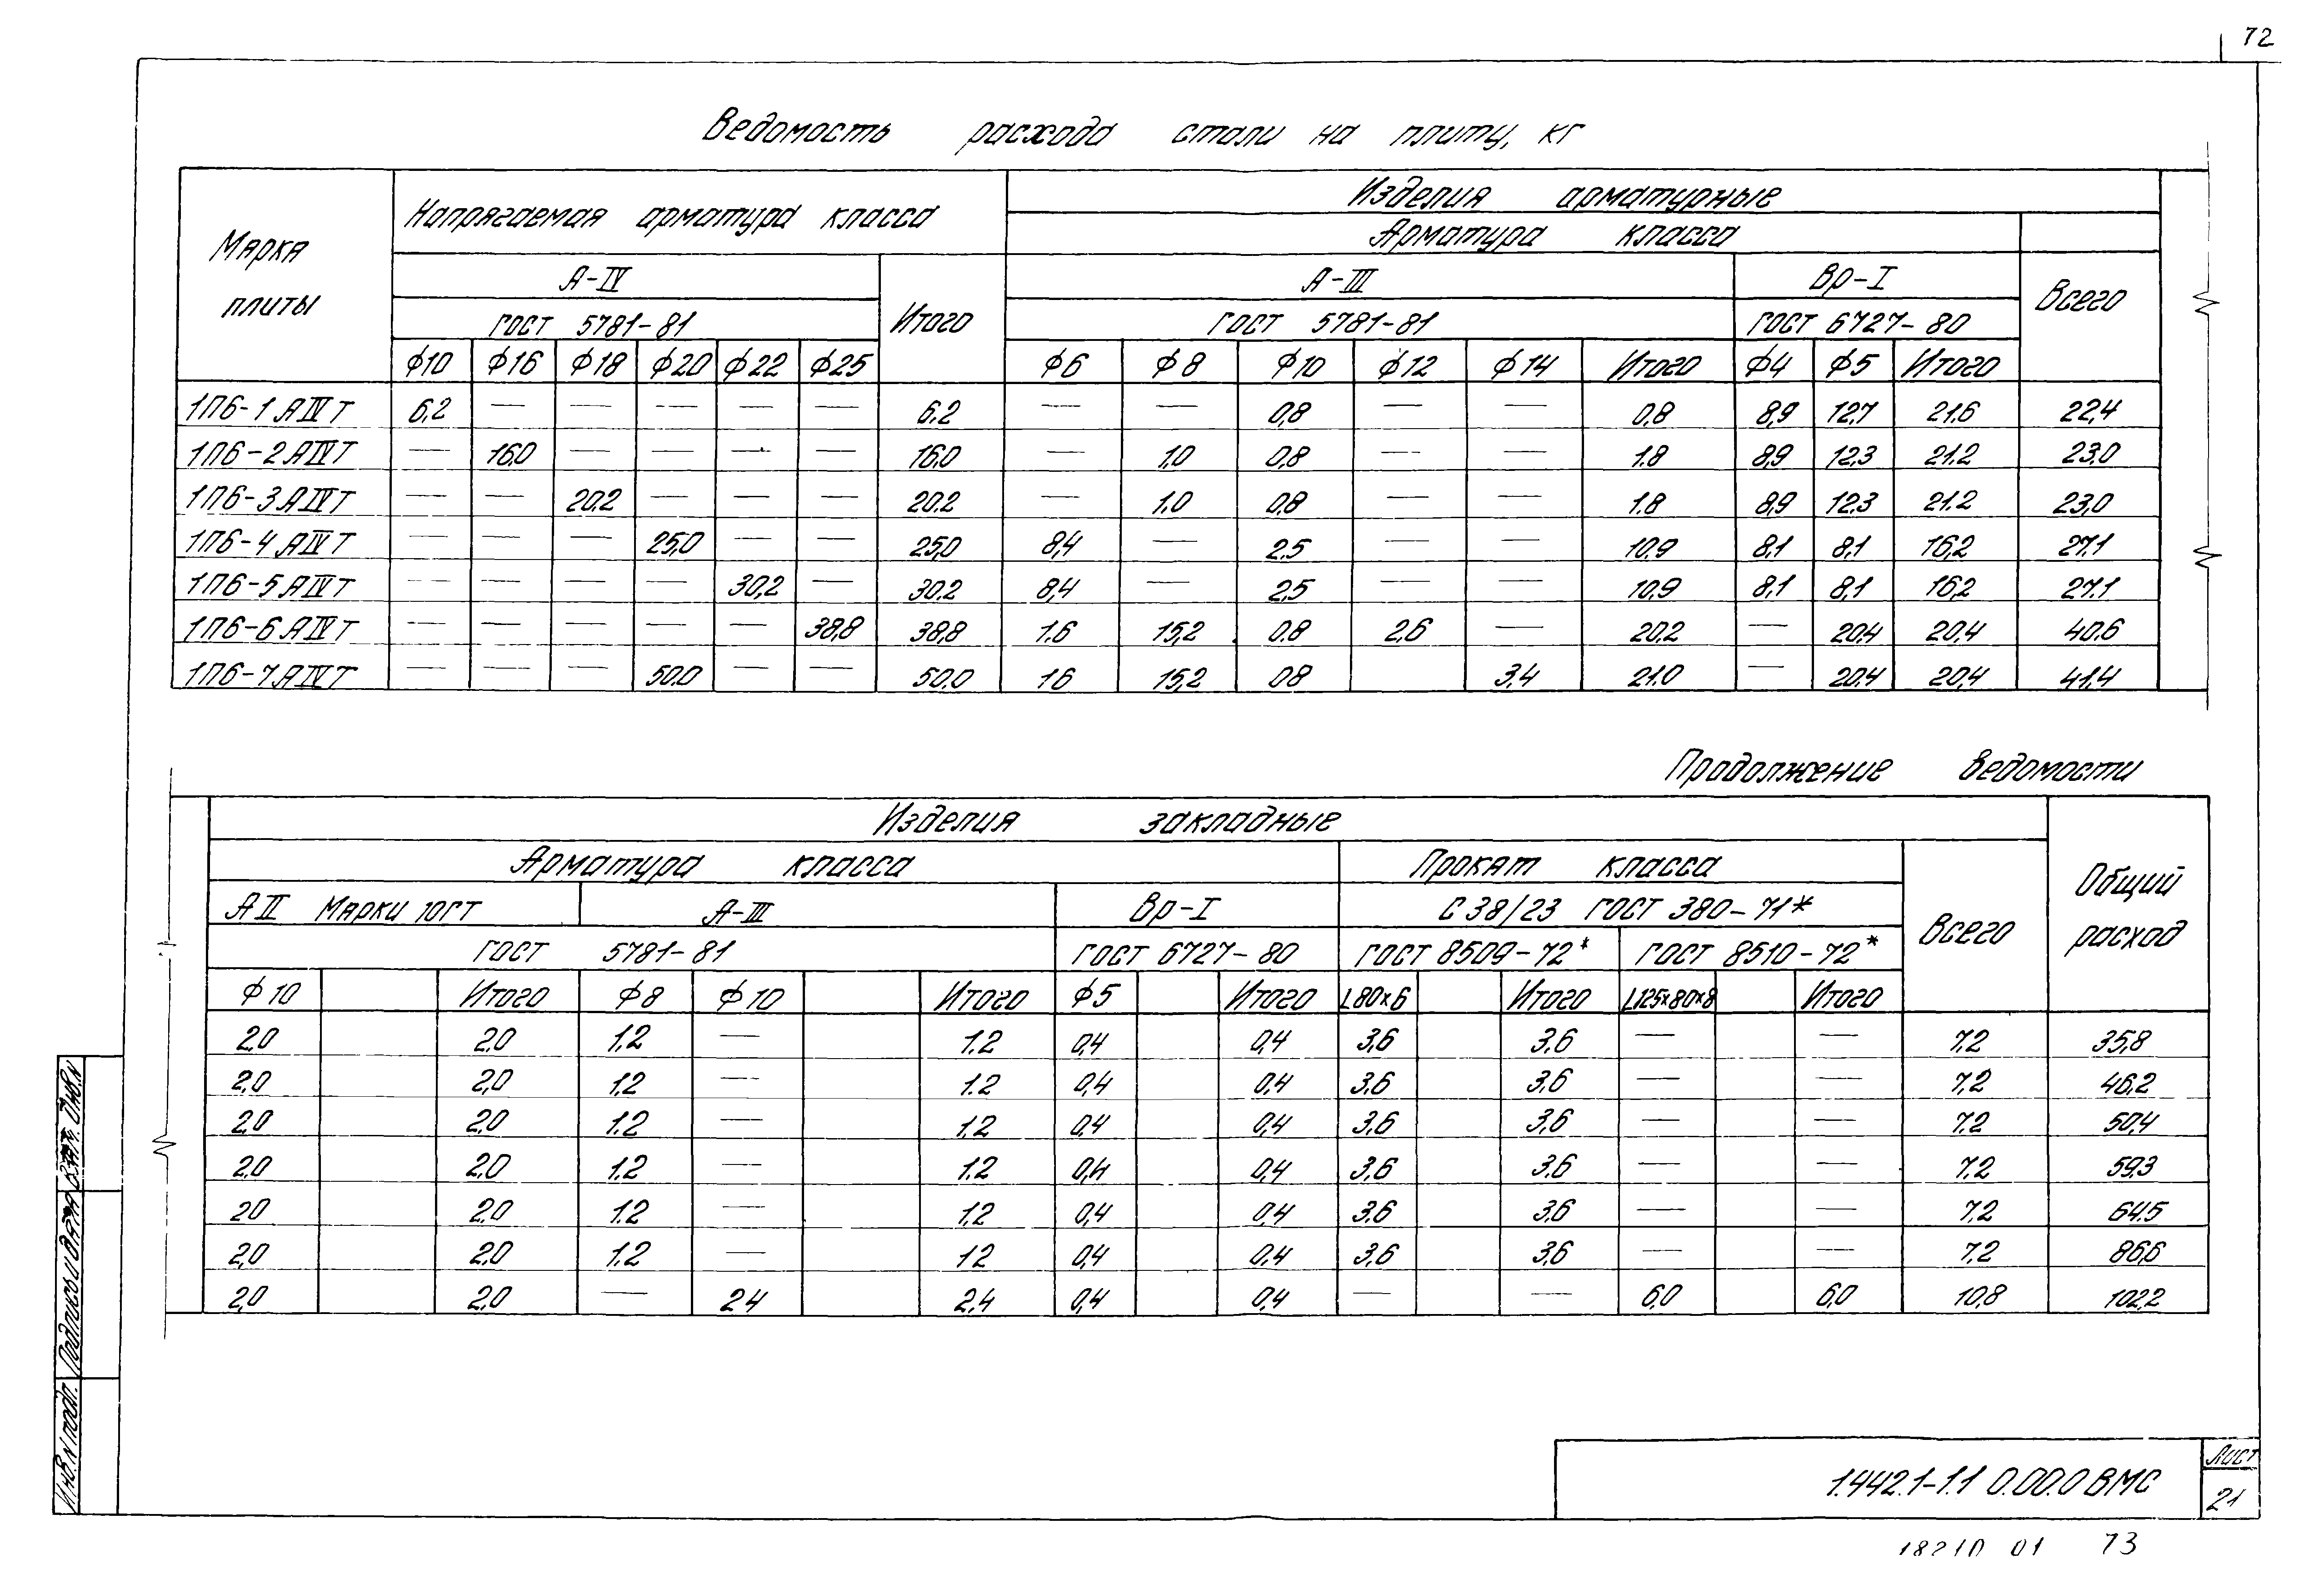 72
Ведомость расхода стали на плиту, кг
Марка плиты
Напрягаемая арматура класса
Изделия арматурные
Арматура класса
А-IV
Итого
А-III
Вр-I
Всего
ГОСТ 5781-81
ГОСТ 5781-81
ГОСТ 6727-80
ϕ10 ϕ16 ϕ18 ϕ20 ϕ22 ϕ25 ϕ6 ϕ8 ϕ10 ϕ12 ϕ14 Итого ϕ4 ϕ5 Итого
1П6-1АIVТ 6,2 — — — — — 6,2 — — 0,8 — — 0,8 8,9 12,7 21.6 22,4
1П6-2АIVТ — 16.0 — — — — 16.0 — 1.0 0,8 — — 1.8 8,9 12,3 21.2 23,0
1П6-3АIVТ — — 20.2 — — — 20.2 — 1.0 0,8 — — 1.8 8,9 12.3 21.2 23,0
1П6-4АIVТ — — — 25,0 — — 25,0 8,4 — 2.5 — — 10.9 8,1 8,1 16,2 27.1
1П6-5АIVТ — — — — 30,2 — 30.2 8,4 — 2,5 — — 10,9 8.1 8,1 16,2 27.1
1П6-6АIVТ — — — — — 38,8 38,8 1.6 15,2 0.8 2,6 — 20.2 — 20,4 20,4 40.6
1П6-7АIVТ — — — 50.0 — — 50,0 16 15,2 08 3.4 21.0 — 20.4 20,4 41,4
Продолжение ведомости
Изделия закладные
Общий расход
Арматура класса
Прокат класса
Всего
АII Марки 10ГТ
А-III
Вр-I
С 38/23 ГОСТ 380-71*
ГОСТ 5781-81
ГОСТ 6727-80
ГОСТ 8509-72*
ГОСТ 8510-72*
ϕ10 Итого ϕ8 ϕ10 Итого ϕ5 Итого L80×6 Итого L125×80×8 Итого
2,0 2,0 1,2 — 1.2 0,4 0,4 3,6 3,6 — — 7,2 35,8
2,0 2,0 1,2 — 1.2 0,4 0,4 3,6 3,6 — — 7,2 46,2
2,0 2,0 1.2 — 1.2 0,4 0,4 3,6 3,6 — — 7,2 50,4
2,0 2,0 1.2 — 1.2 0,4 0,4 3,6 3,6 — — 7.2 59,3
20 2,0 1.2 — 1.2 0,4 0,4 3,6 3,6 — — 7,2 64.5
2,0 2,0 1.2 — 12 0,4 0,4 3,6 3,6 — — 7,2 86,6
2,0 2,0 — 24 2,4 0,4 0,4 — — 6,0 6,0 10,8 102,2
Инв.N подл. Подпись и дата Взам. инв.N
1.442.1-1.1 0.00.0 ВМС
Лист
21
18210 01 73